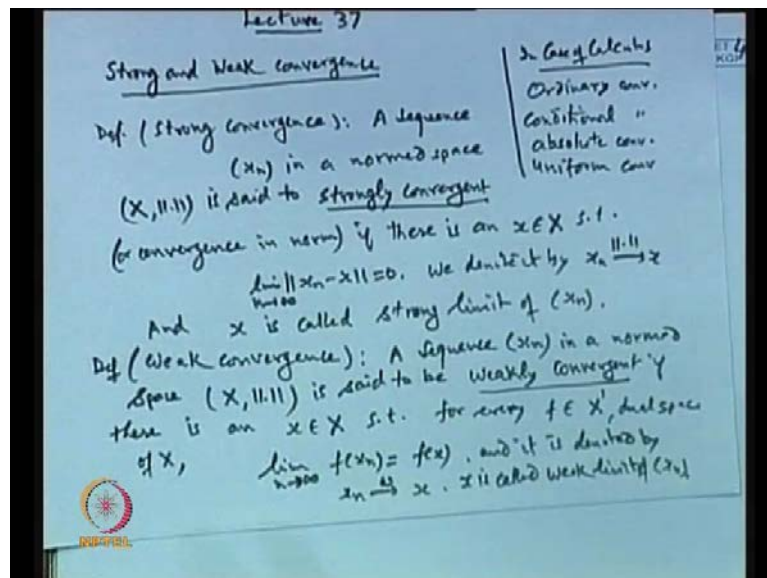 Lecture 37
Strong and Weak convergence
In Case of Calculus
Ordinary conv.
Conditional "
absolute conv.
Uniform conv
Def. (Strong convergence): A sequence
(xn) in a normed space
(X, ||.||) is said to strongly convergent
(or convergence in norm) if there is an x ∈ X s.t.
lim n→∞ ||xn - x|| = 0. We denote it by xn →||.|| x
And x is called strong limit of (xn).
Def (Weak convergence): A sequence (xn) in a normed
space (X, ||.||) is said to be weakly convergent if
there is an x ∈ X s.t. for every f ∈ X', dual space
of X, lim n→∞ f(xn) = f(x). and it is denoted by
xn →ω x. x is called weak limit of (xn)
NPTEL